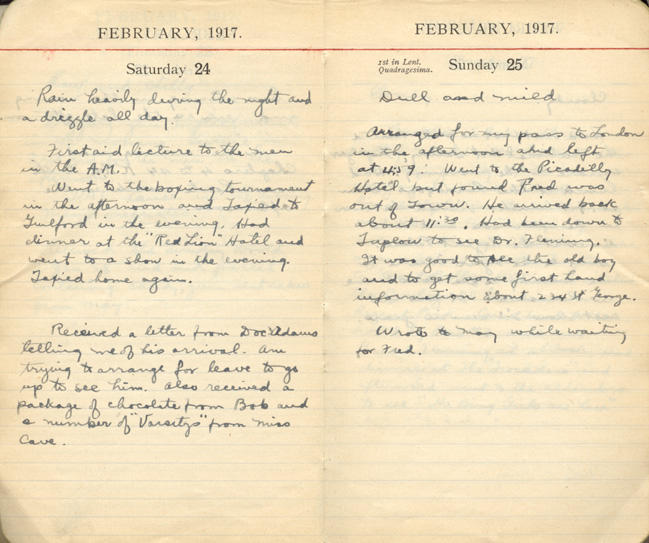 FEBRUARY, 1917.
Saturday 24
Rain heavily during the night and
a drizzle all day.
First aid lecture to the men
in the A.M.
Went to the boxing tournament
in the afternoon and Taxied to
Guilford in the evening. Had
dinner at the "Red Lion" Hotel and
went to a show in the evening.
Taxied home again.
Received a letter from Doc Adams
telling me of his arrival. Am
trying to arrange for leave to go
up to see him. Also received a
package of chocolate from Bob and
a number of "Varsitys" from Miss
Cave.
FEBRUARY, 1917.
1st in Lent.
Quadragesima.
Sunday 25
Dull and mild
Arranged for my pass to London
in the afternoon and left
at 4:59. Went to the Picadilly
Hotel but found Fred was
out of Town. He arrived back
about 11:30. Had been down to
Taplow to see Dr. Fleming.
It was good to see the old boy
and to get some first hand
information about 2nd St George.
Wrote to May while waiting
for Fred.